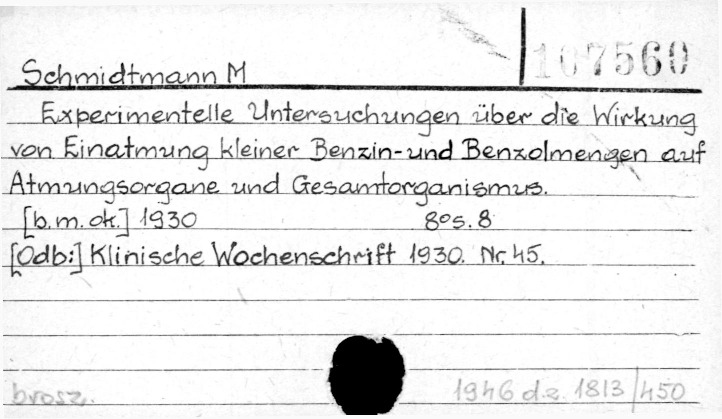 107560
Schmidtmann M
Experimentelle Untersuchungen über die Wirkung
von Einatmung kleiner Benzin- und Benzolmengen auf
Atmungsorgane und Gesamtorganismus.
[b.m.ok.] 1930 8os. 8
[Odb:] Klinische Wochenschrift 1930. Nr. 45.
brosz. 1946 d.z. 1813/450